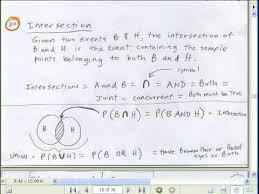 20 Intersection
Given two events B & H, the intersection of
B and H is the event containing the sample
points belonging to both B and H.
symbol
Intersections = A and B = ∩ = AND = Both =
Joint = concurrent = Both must be True
P(B∩H) = P(B AND H) = Intersection
B H
Union = P(B∪H) = P(B OR H) = Have Brown Hair or Hazel
eyes or Both
8.46 x 10.99 in
18 of 36